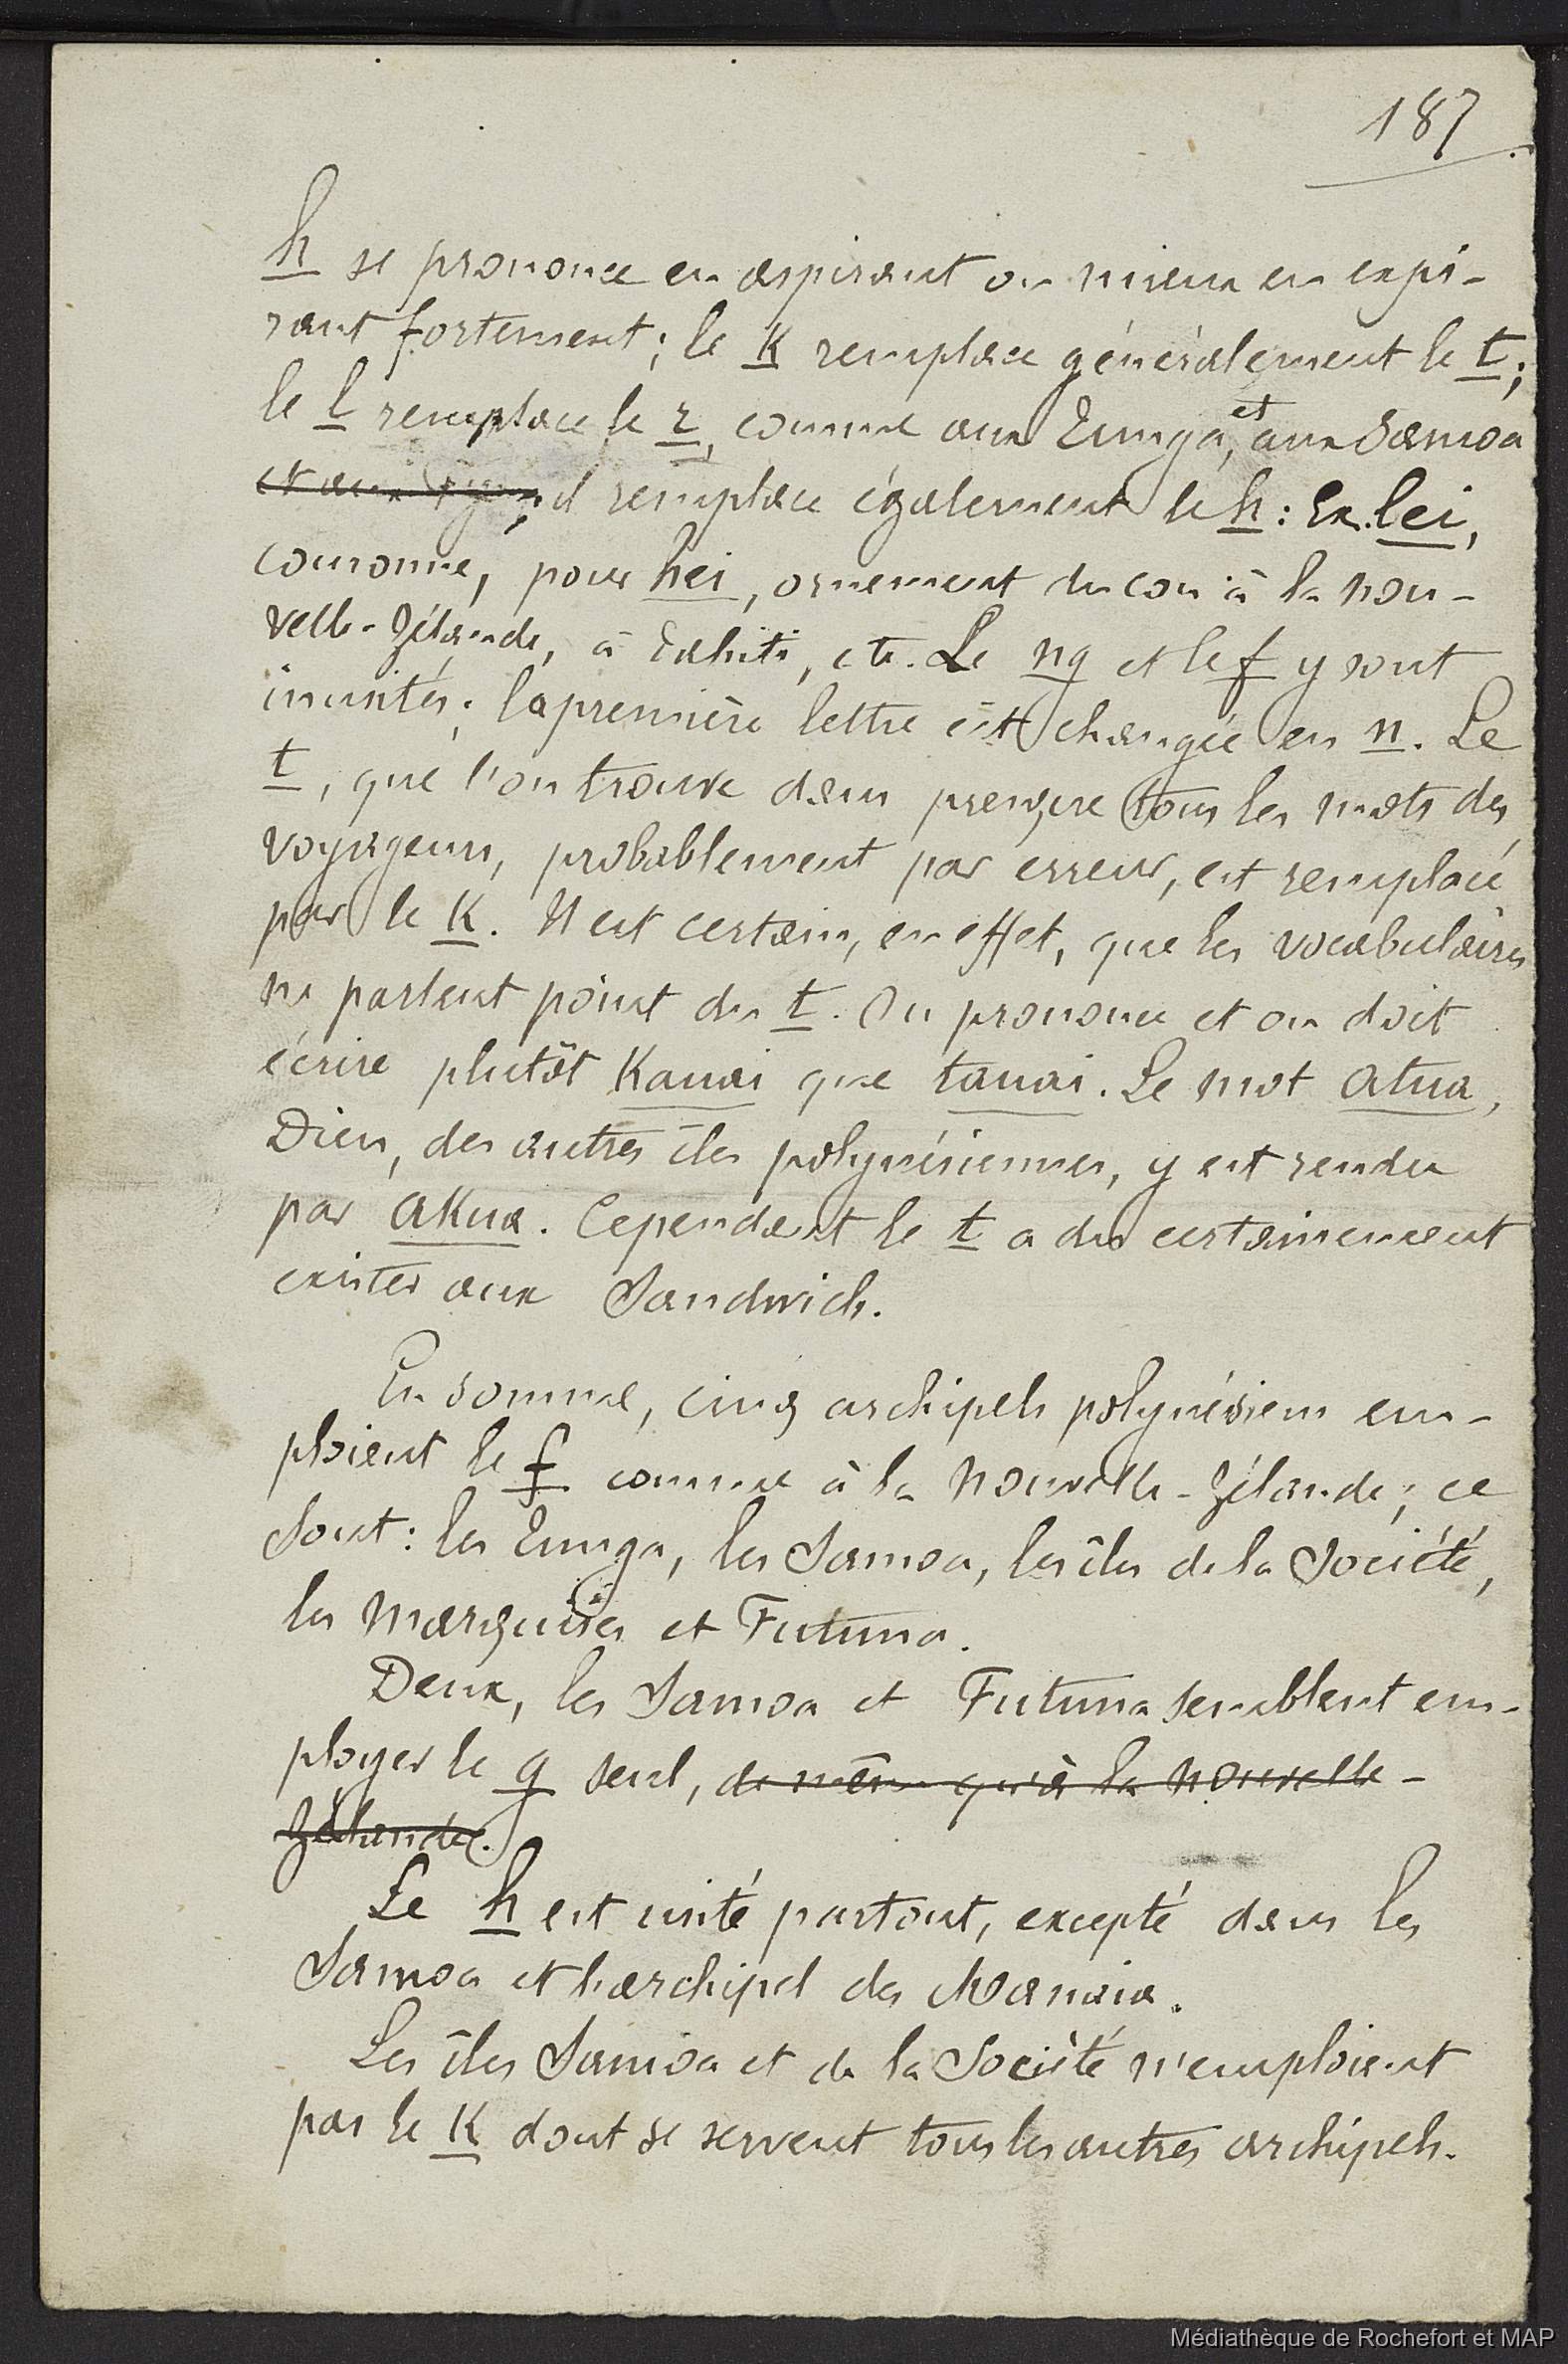 187
h se prononce en aspirant ou mieux en expi-
rant fortement ; le K remplace généralement le t ;
le l remplace le r, comme aux Tunga, et aux Samoa
il remplace également le h : Ex. lei,
couronne, pour hei, ornement du cou à la nou-
velle-Zélande, à Tahiti, etc. Le ng et le f y sont
inusités ; la première lettre est changée en n. Le
t, que l'on trouve dans presque tous les mots des
voyageurs, probablement par erreur, est remplacé
par le K. Il est certain, en effet, que les vocabulaires
ne parlent point du t. On prononce et on doit
écrire plutôt Kauai que tauai. Le mot atua,
Dieu, des autres îles polynésiennes, y est rendu
par aKua. Cependant le t a dû certainement
exister aux Sandwich.
En somme, cinq archipels polynésiens em-
ploient le f comme à la Nouvelle-Zélande ; ce
sont : les Tunga, les Samoa, les îles de la Société,
les Marquises et Futuna.
Deux, les Samoa et Futuna semblent em-
ployer le g seul, de même qu'à la Nouvelle-
Zélande.
Le h est usité partout, excepté dans les
Samoa et l'archipel des Manaia.
Les îles Samoa et de la Société n'emploient
pas le K dont se servent tous les autres archipels.
Médiathèque de Rochefort et MAP